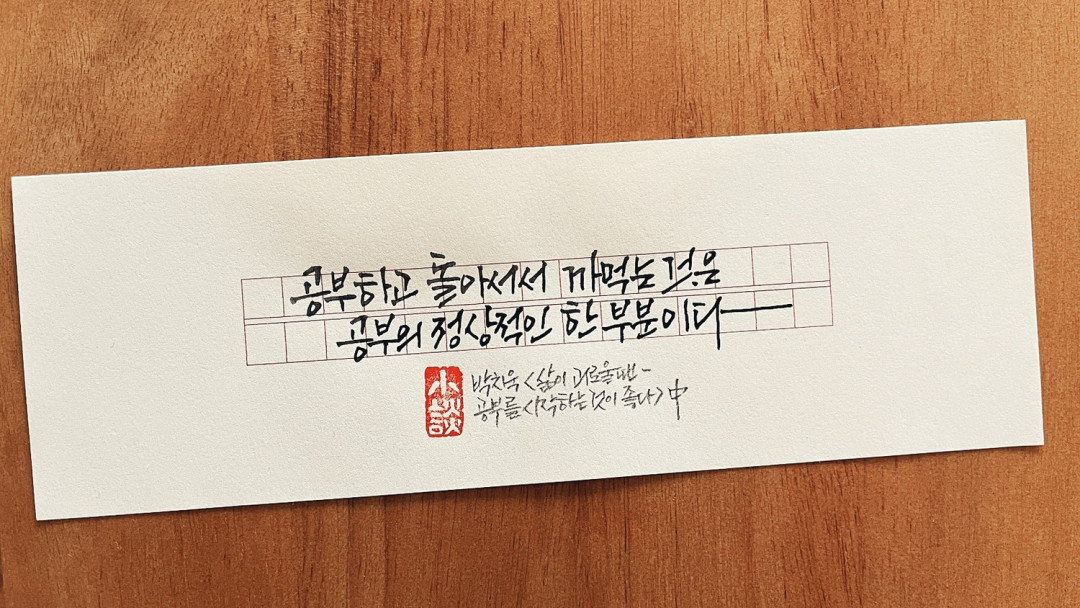 공부하고 돌아서서 까먹는 것은
공부의 정상적인 한 부분이다
小談
박치욱 <삶이 괴로울 땐
공부를 시작하는 것이 좋다> 中